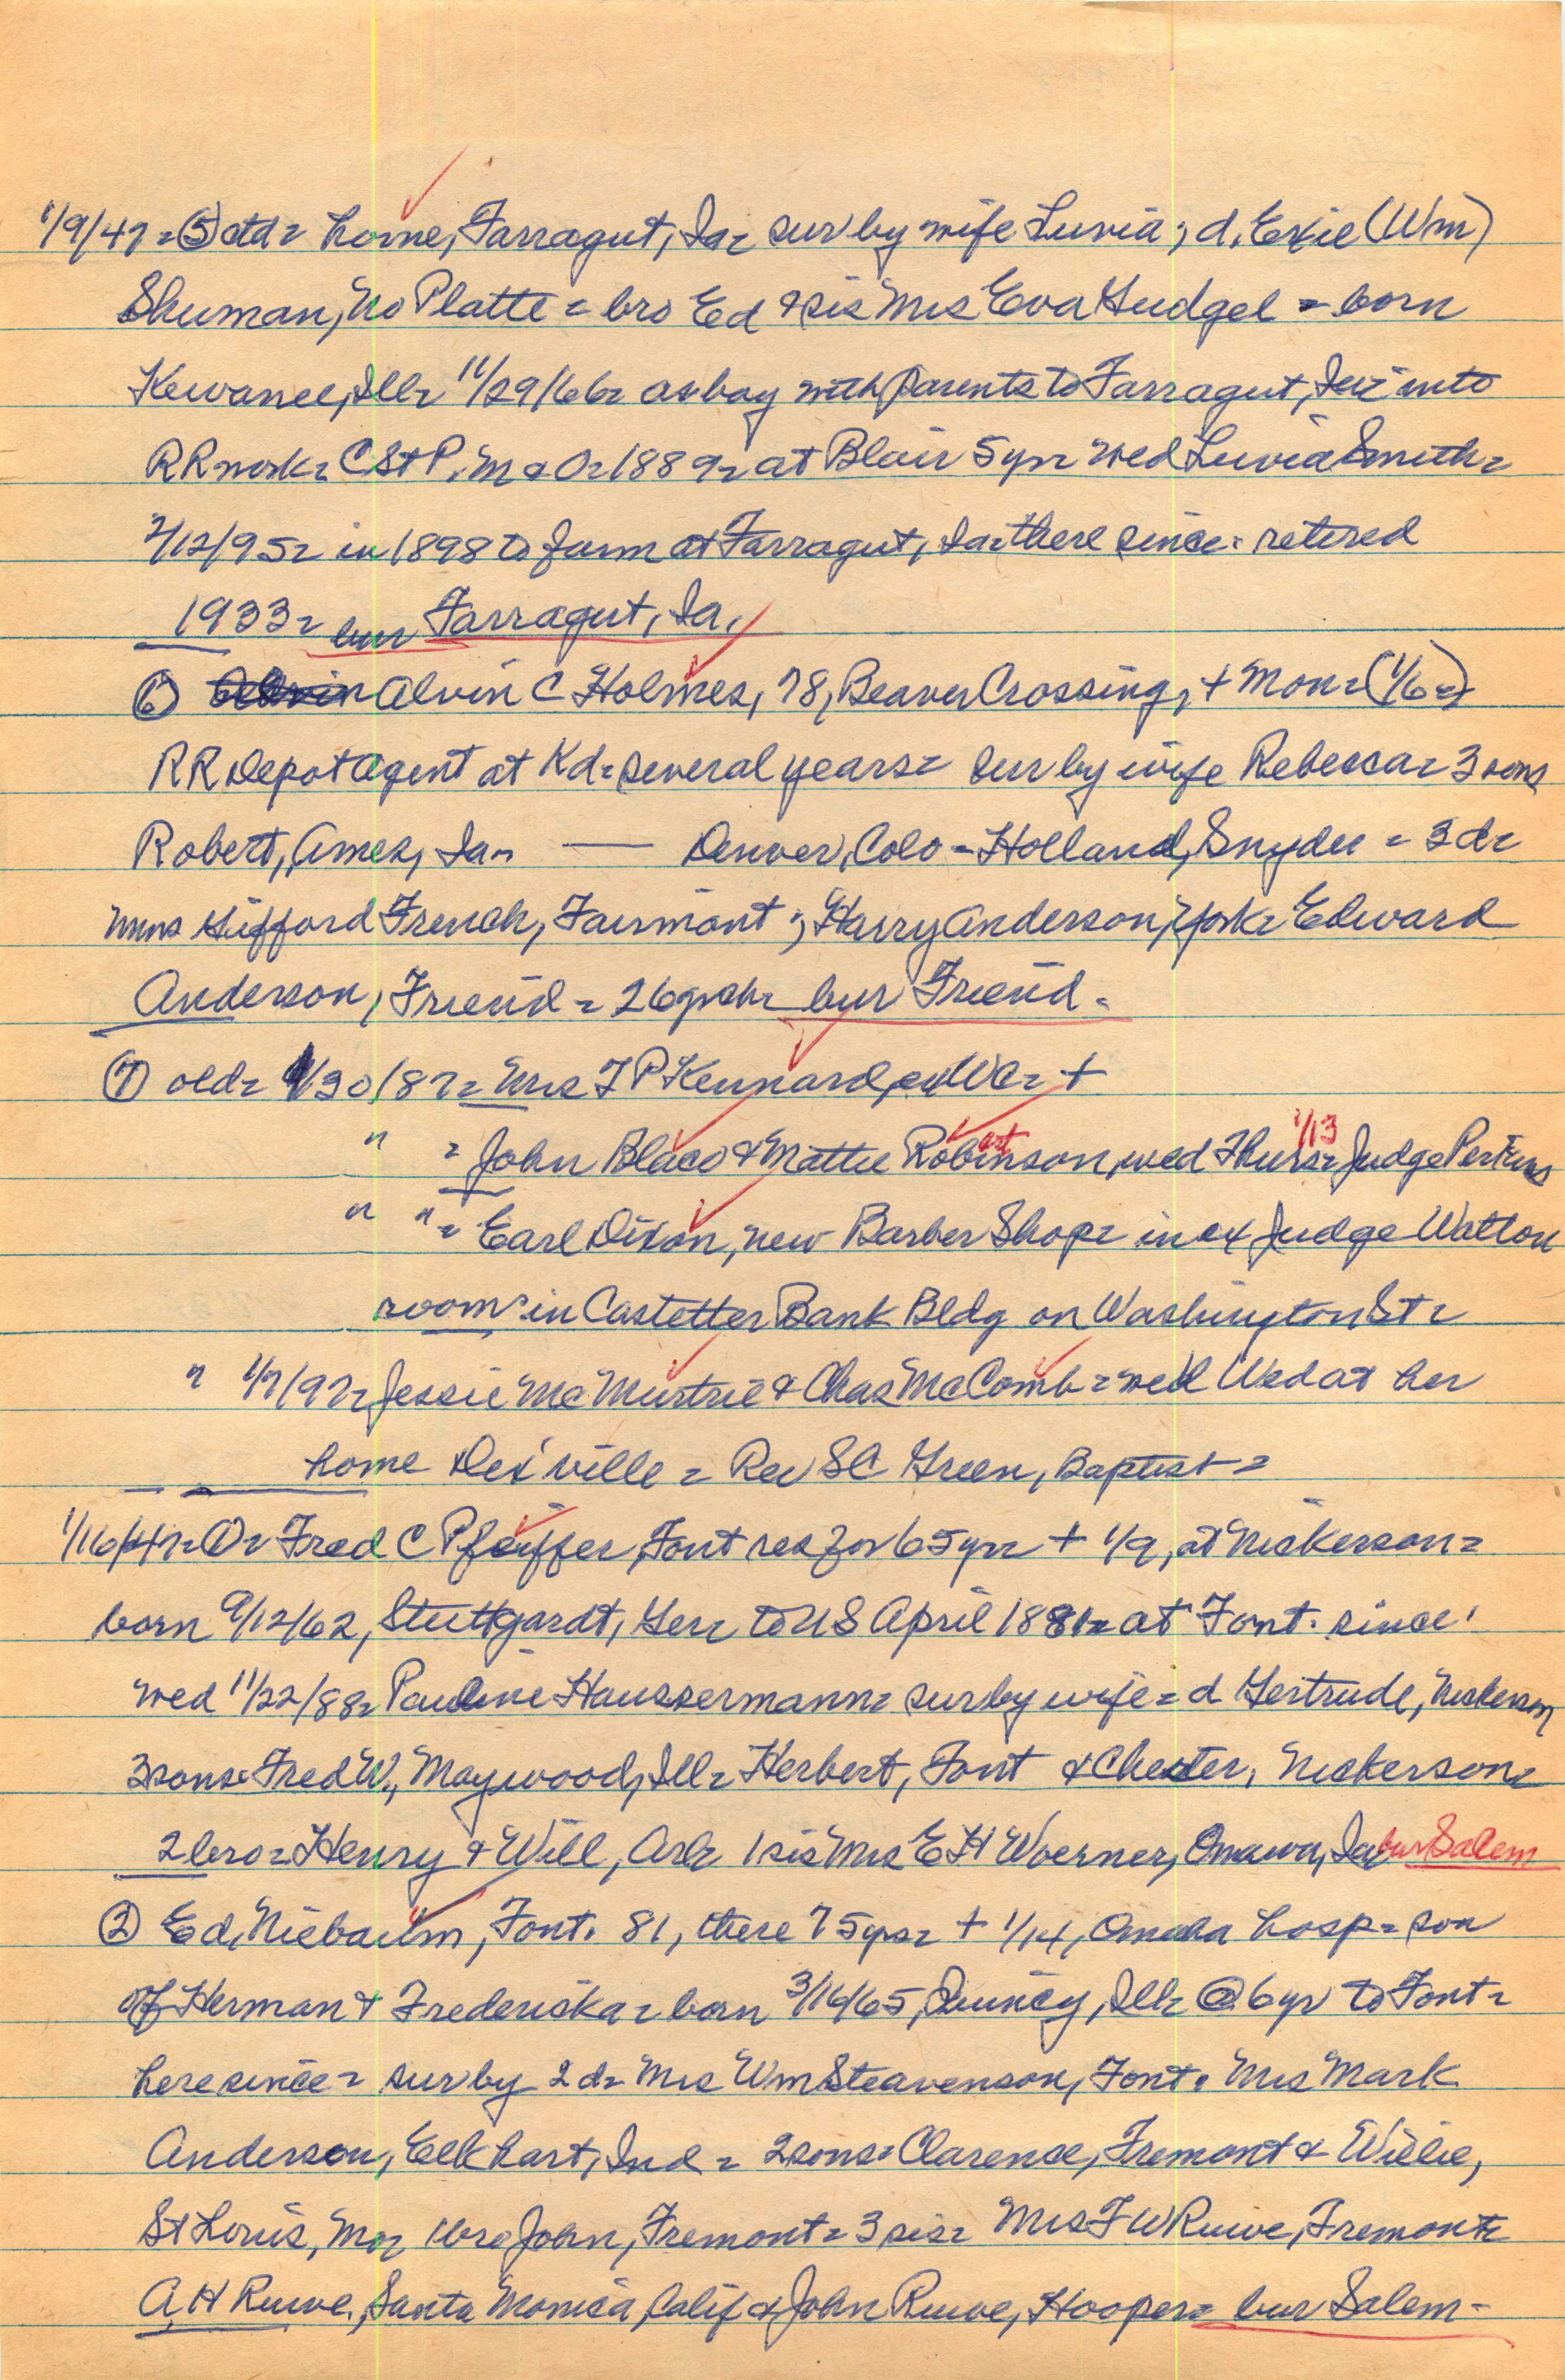 1/9/47 = ⑤ ctd = home, Farragut, Ia = sur by wife Luvia; d. Exie (Wm)
Shuman, No Platte = bro Ed & sis Mrs Eva Gudgel = born
Kewanee, Ill = 11/29/66 = as boy with parents to Farragut, Ia = into
RR work = C St P. M & O = 1889 = at Blair 5 yr = wed Luvia Smith =
2/12/95 = in 1898 to farm at Farragut, Ia = there since = retired
1933 = bur Farragut, Ia.
⑥ Alvin C Holmes, 78, Beaver Crossing, + Mon = (1/6 =)
RR Depot Agent at Kd = several years = sur by wife Rebecca = 3 sons
Robert, Ames, Ia = — Denver, Colo = Holland, Snyder = 3 d =
Mmes Gifford French, Fairmont; Harry Anderson, York = Edward
Anderson, Friend = 26 grch = bur Friend =
⑦ old = 1/30/87 = Mrs J P Kennard, ex WC = +
" = John Blaco & Mattie Robinson, wed Thurs = 1/13 Judge Perkins
" " = Earl Dixon, new Barber Shop = in ex Judge Walton
room in Castetter Bank Bldg on Washington St =
" 1/7/97 = Jessie McMurtrie & Chas McComb = wed Wed at her
home De'ville = Rev SC Green, Baptist =
1/16/47 = ① = Fred C Pfeiffer, Font res for 65 yr = + 1/9, at Nickerson =
born 9/12/62, Stuttgardt, Ger = to US April 1881 = at Font. since
wed 11/22/88 = Pauline Haussermann = sur by wife = d Gertrude, Nickerson
3 sons = Fred W., Maywood, Ill = Herbert, Font & Chester, Nickerson =
2 bro = Henry & Will, Arl = 1 sis Mrs E H Woerner, Onawa, Ia bur Salem
② Ed. Niebaum, Font. 81, there 75 yr = + 1/14, Omaha hosp = son
of Herman & Frederiska = born 3/16/65, Quincy, Ill = @ 6 yr to Font =
here since = sur by 2 d = Mrs Wm Steavenson, Font. Mrs Mark
Anderson, Elkhart, Ind = 2 sons = Clarence, Fremont & Willie,
St Louis, Mo = 1 bro John, Fremont = 3 sis = Mrs F W Ruwe, Fremont =
A H Ruwe, Santa Monica, Calif & John Ruwe, Hooper = bur Salem =